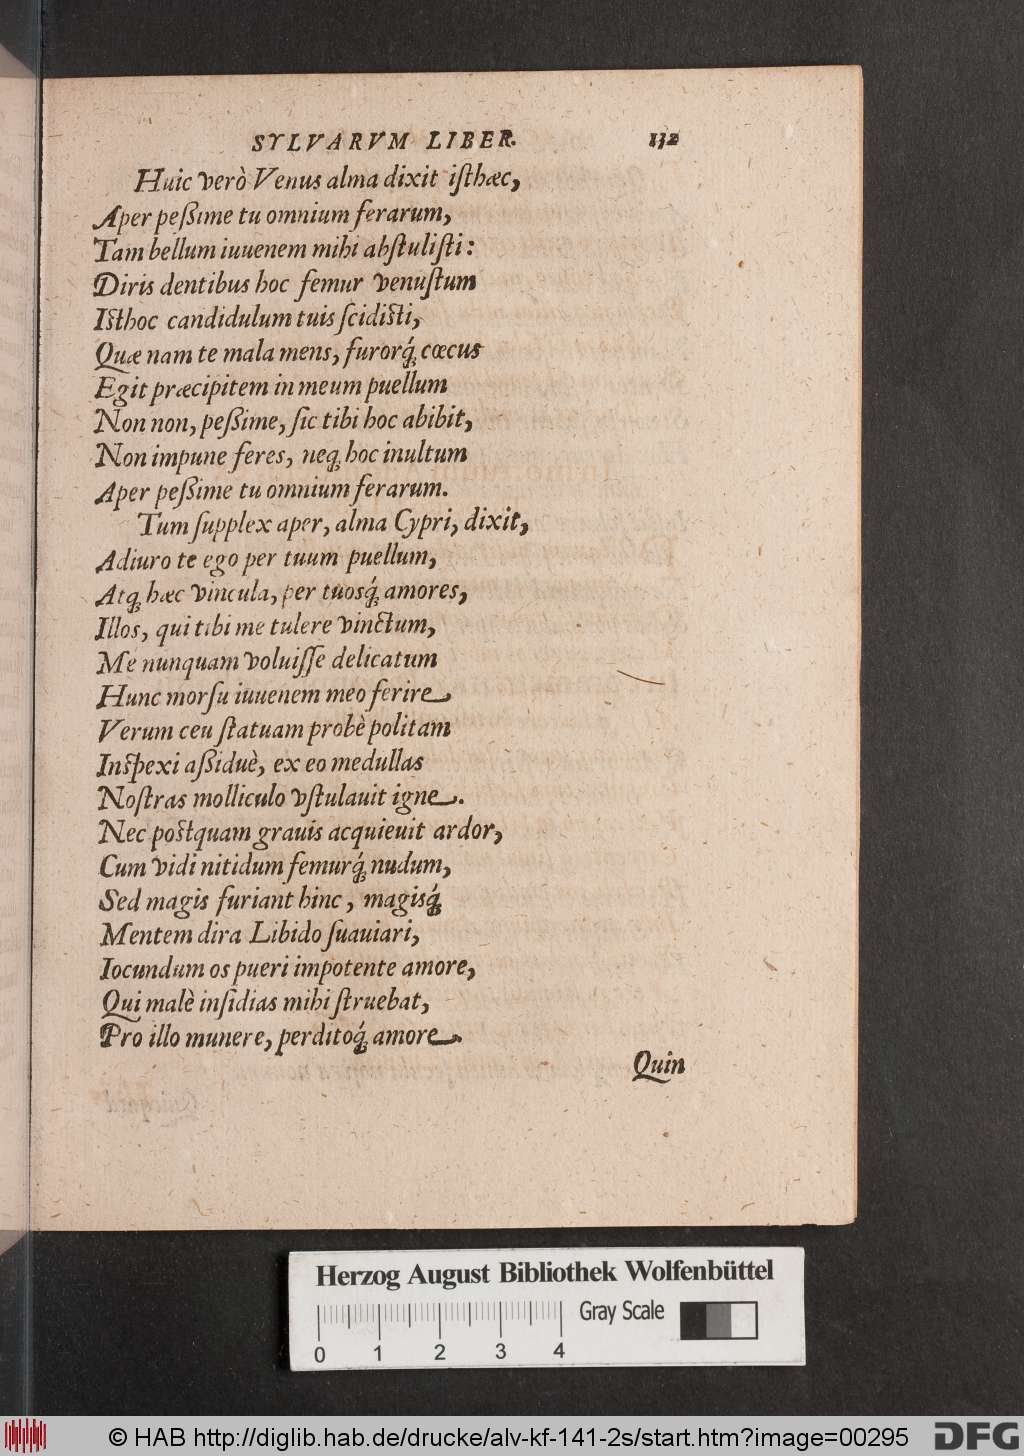 SYLVARVM LIBER. 132
Huic verò Venus alma dixit isthæc,
Aper peßime tu omnium ferarum,
Tam bellum iuuenem mihi abstulisti:
Diris dentibus hoc femur venustum
Isthoc candidulum tuis scidisti,
Quæ nam te mala mens, furorq́; cœcus
Egit præcipitem in meum puellum
Non non, peßime, sic tibi hoc abibit,
Non impune feres, neq; hoc inultum
Aper peßime tu omnium ferarum.
Tum supplex aper, alma Cypri, dixit,
Adiuro te ego per tuum puellum,
Atq; hæc vincula, per tuosq́; amores,
Illos, qui tibi me tulere vinctum,
Me nunquam voluisse delicatum
Hunc morsu iuuenem meo ferire
Verum ceu statuam probè politam
Inspexi aßiduè, ex eo medullas
Nostras molliculo vstulauit igne.
Nec postquam grauis acquieuit ardor,
Cum vidi nitidum femurq́; nudum,
Sed magis furiant hinc, magisq́;
Mentem dira Libido suauiari,
Iocundum os pueri impotente amore,
Qui malè insidias mihi struebat,
Pro illo munere, perditoq́; amore.
Quin
Herzog August Bibliothek Wolfenbüttel
Gray Scale
0 1 2 3 4
© HAB http://diglib.hab.de/drucke/alv-kf-141-2s/start.htm?image=00295
DFG